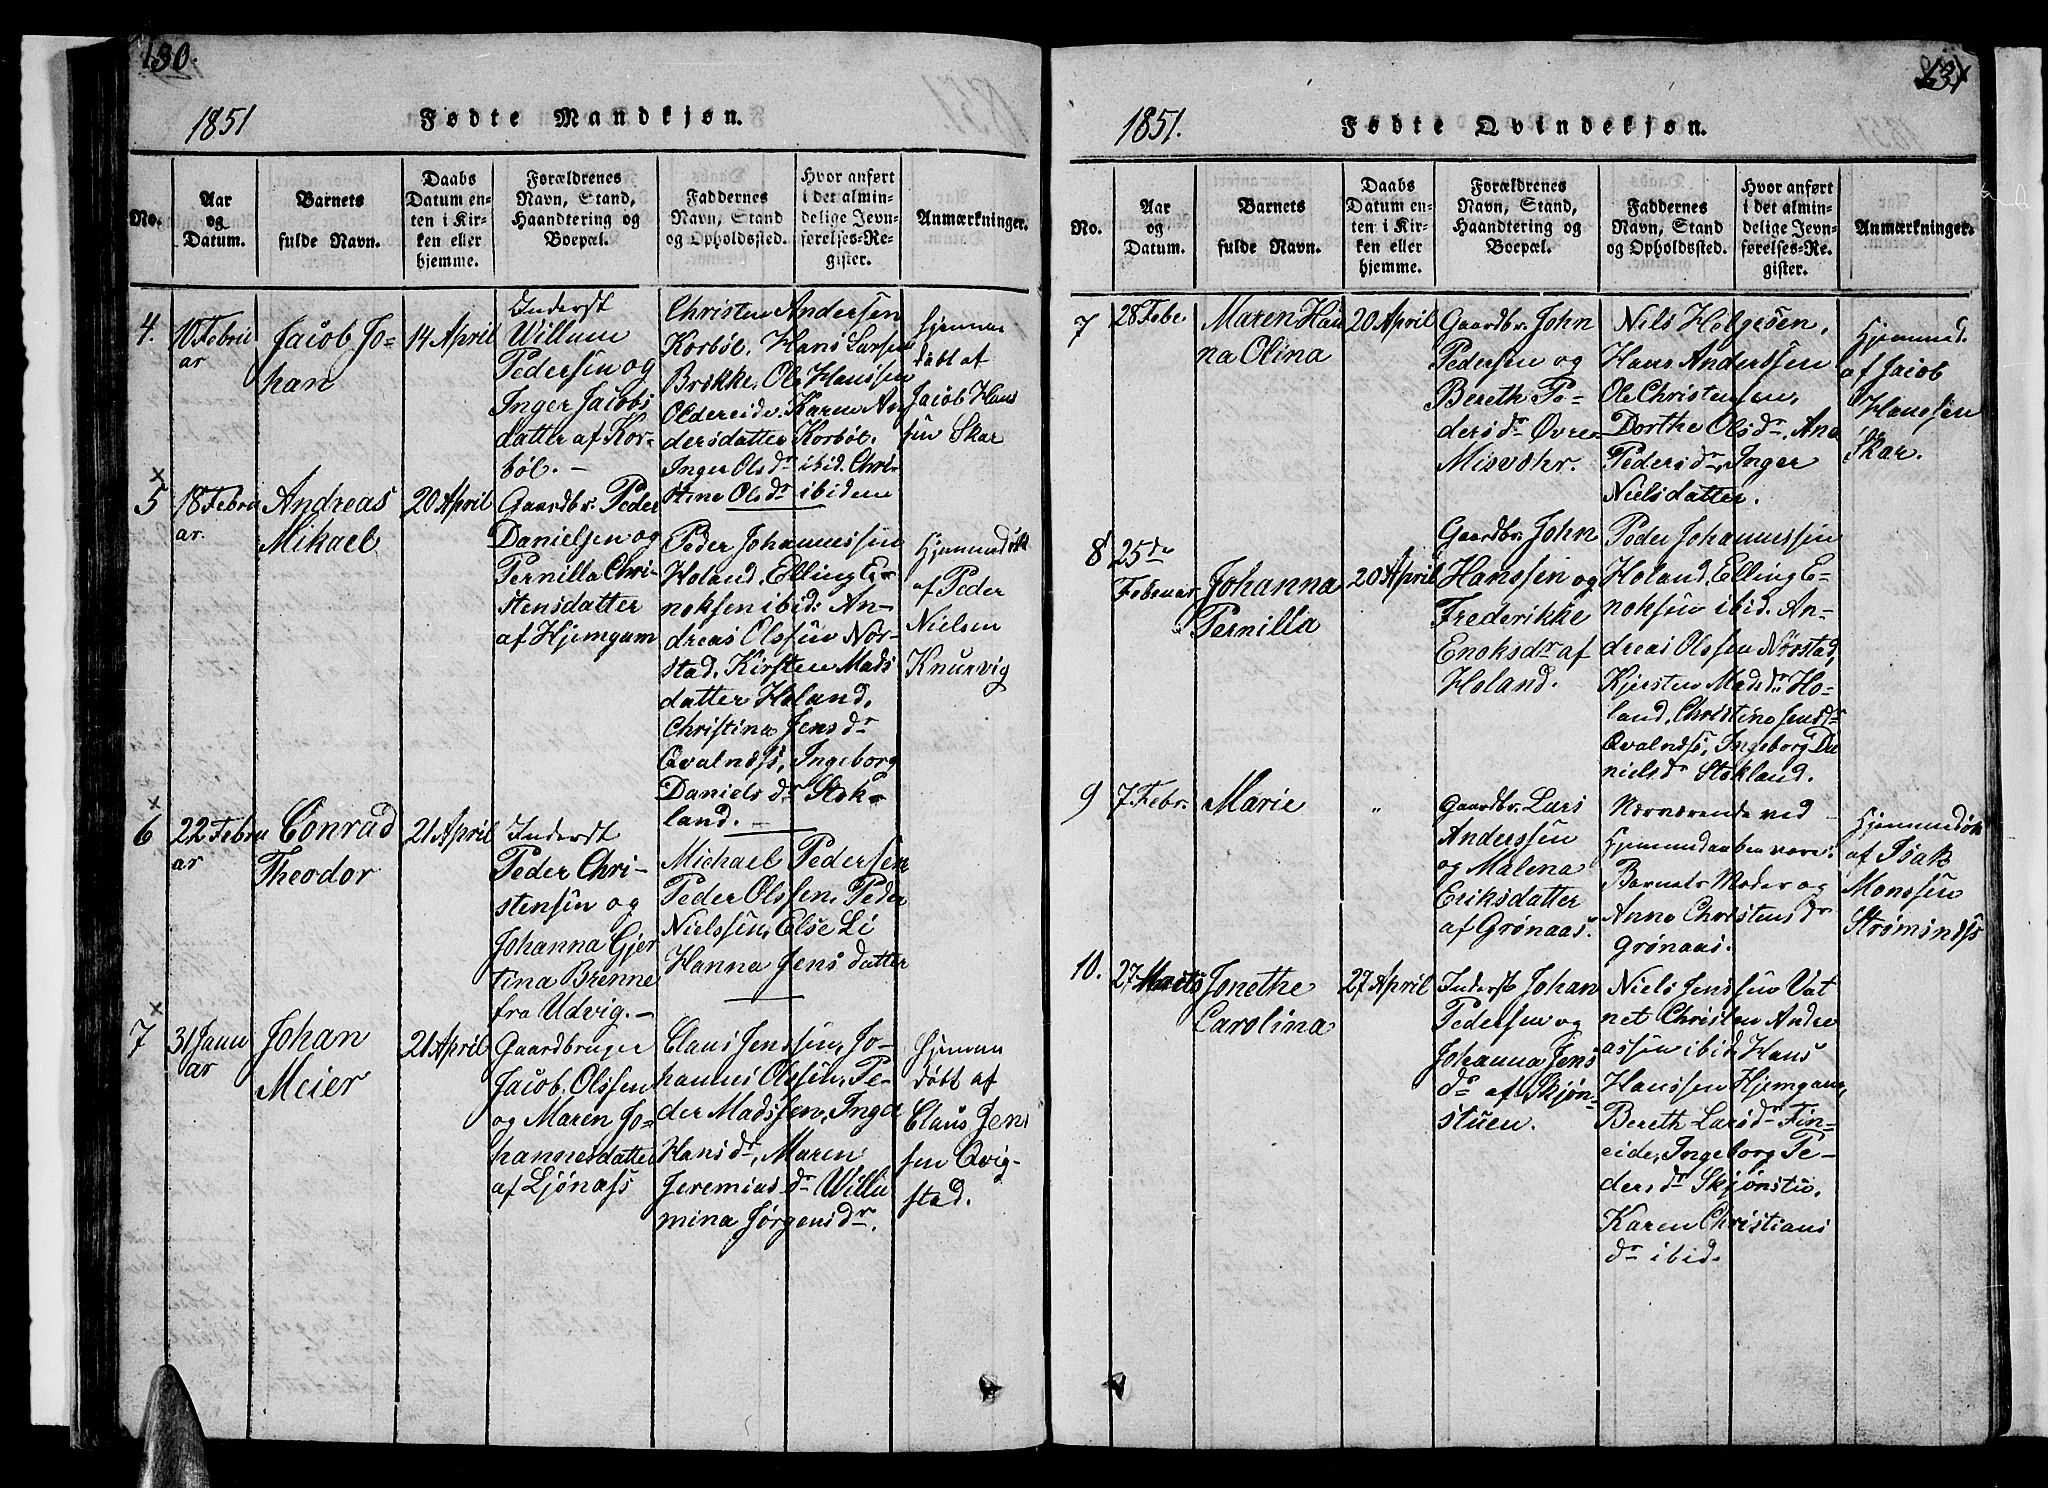 130.
1851
Fødte Mandkjøn.
No.
Aar
og
Datum.
Barnets
fulde Navn.
Daabs
Datum en-
ten i Kir-
ken eller
hjemme.
Forældrenes
Navn, Stand,
Haandtering og
Boepæl.
Faddernes
Navn, Stand
og Opholdssted.
Hvor anført
i det almin-
delige Jevn-
førelses-Re-
gister.
Anmærkninger.
4.
10 Febru
ar
Jacob Jo-
han
14 April
Inderst
Willum
Pedersen og
Inger Jacobs
datter af Kor-
bøl. -
Christen Andersen
Korbøl, Hans Larsen
Brekke, Ole Hanssen
Oldereide, Karen An
dersdatter Korbøl.
Inger Olsdr ibid. Chri-
stine Olsdr ibidem
hjemme
døbt af
Jacob Hans
sen Skar
5
18 Febru
ar.
Andreas
Mikael
20 April
Gaardbr. Peder
Danielsen og
Pernilla Chri-
stensdatter
af Hjemgam
Peder Johannessen
Holand, Elling E-
noksen ibid: An-
dreas Olssen Nor-
stad, Kirsten Mads
datter Holand,
Christina Jens dr
Qvalnæss, Ingeborg
Daniels dr Stok-
land. -
Hjemmedøbt
af Peder
Nielsen
Knurvig
6
22 Febru
ar
Conrad
Theodor
21 April
Inderst
Peder Chri-
stensen og
Johanna Gjer
tina Brenne
fra Udvig. -
Michael Pedersen
Peder Olssen, Peder
Nielssen, Else Li
Hanna Jens datter
7
31 Janu
ar
Johan
Meier
21 April
Gaardbruger
Jacob Olssen
og Maren Jo-
hannesdatter
af Ljønæss
Claus Jenssen, Jo-
hannes Olssen, Pe-
der Madssen, Inger
Hansdr, Maren
Jeremias dr Willu
mina Jørgensdr.
hjemme
døbt af
Claus Jens
sen Qvig-
stad.
131
1851.
Fødte Qvindekjøn.
No.
Aar
og
Datum.
Barnets
fulde Navn.
Daabs
Datum en-
ten i Kir-
ken eller
hjemme.
Forældrenes
Navn, Stand,
Haandtering og
Boepæl.
Faddernes
Navn, Stand
og Opholdssted.
Hvor anført
i det almin-
delige Jevn-
førelses-Re-
gister.
Anmærkninger.
7
28 Febr
Maren Han
na Olina
20 April
Gaardbr. John
Pedersen og
Bereth Pe-
dersdr Øvre
Misvohr.
Nils Holgesen,
Hans Anderssen
Ole Christensen,
Dorthe Olsdr, Ane
Pedersdr, Inger
Nielsdatter.
Hjemmed.
af Jacob
Hanssen
Skar.
8
25de
Februar
Johanna
Pernilla
20 April
Gaardbr. John
Hanssen og
Frederikke
Enoksdr af
Holand.
Peder Johannessen
Holand, Elling E-
noksen ibid. An-
dreas Olssen Nørstad,
Kjersten Madsdr Ho-
land, Christine Jensdr
Qvalnæss, Ingeborg Da
nielsdr Stokland.
9
7 Febr.
Marie
"
Gaardbr. Lars
Anderssen
og Malena
Eriksdatter
af Grønaas.
Nærværende ved
Hjemmedaaben vare:
Barnets Moder og
Anne Christensdr
Grønaas.
Hjemmedøbt
af Isak
Monssen
Strømsnæss
10.
27 Marts
Jonethe
Carolina
27 April
Inderst Johan
Pedersen og
Johanna Jens
dr af Skjøn-
stuen.
Niels Jenssen Vat
net Christen Andre
assen ibid, Hans
Hanssen Hjemgam,
Bereth Larsdr Fin-
eide, Ingeborg Pe-
dersdr Skjønstu.
Karen Christians
dr ibid.